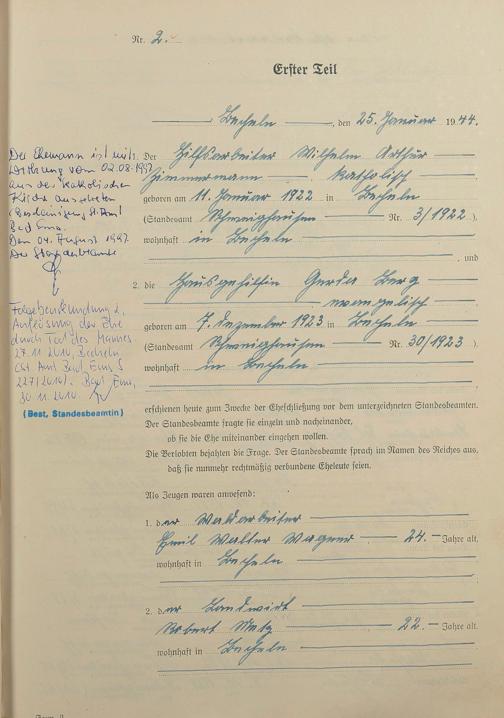 Nr. 2.
Erster Teil
Becheln, den 25. Januar 1944.
Der Ehemann ist mit
Wirkung vom 02.08.1997
aus der katholischen
Kirche ausgetreten
Bad Ems.
Den 04. August 1997
Der Standesbeamte
Folgebeurkundung 2.
Auflösung der Ehe
durch Tod des Mannes
27.11.2010, Becheln
(StA Bad Ems S
227/2010). Bad Ems,
30.11.2010.
(Best, Standesbeamtin)
Der Hilfsarbeiter Wilhelm Arthur
Zimmermann — katholisch
geboren am 11. Januar 1922 in Becheln
(Standesamt Schweighausen Nr. 3/1922),
wohnhaft in Becheln
, und
2. die Hausgehilfin Gerda Berg
evangelisch
geboren am 7. Dezember 1923 in Becheln
(Standesamt Schweighausen Nr. 30/1923)
wohnhaft in Becheln
erschienen heute zum Zwecke der Eheschließung vor dem unterzeichneten Standesbeamten.
Der Standesbeamte fragte sie einzeln und nacheinander,
ob sie die Ehe miteinander eingehen wollen.
Die Verlobten bejahten die Frage. Der Standesbeamte sprach im Namen des Reiches aus,
daß sie nunmehr rechtmäßig verbundene Eheleute seien.
Als Zeugen waren anwesend:
1. der Waldarbeiter
Emil Walter Wagner — 24. — Jahre alt,
wohnhaft in Becheln
2. der Landwirt
Robert Metz — 22 — Jahre alt.
wohnhaft in Becheln